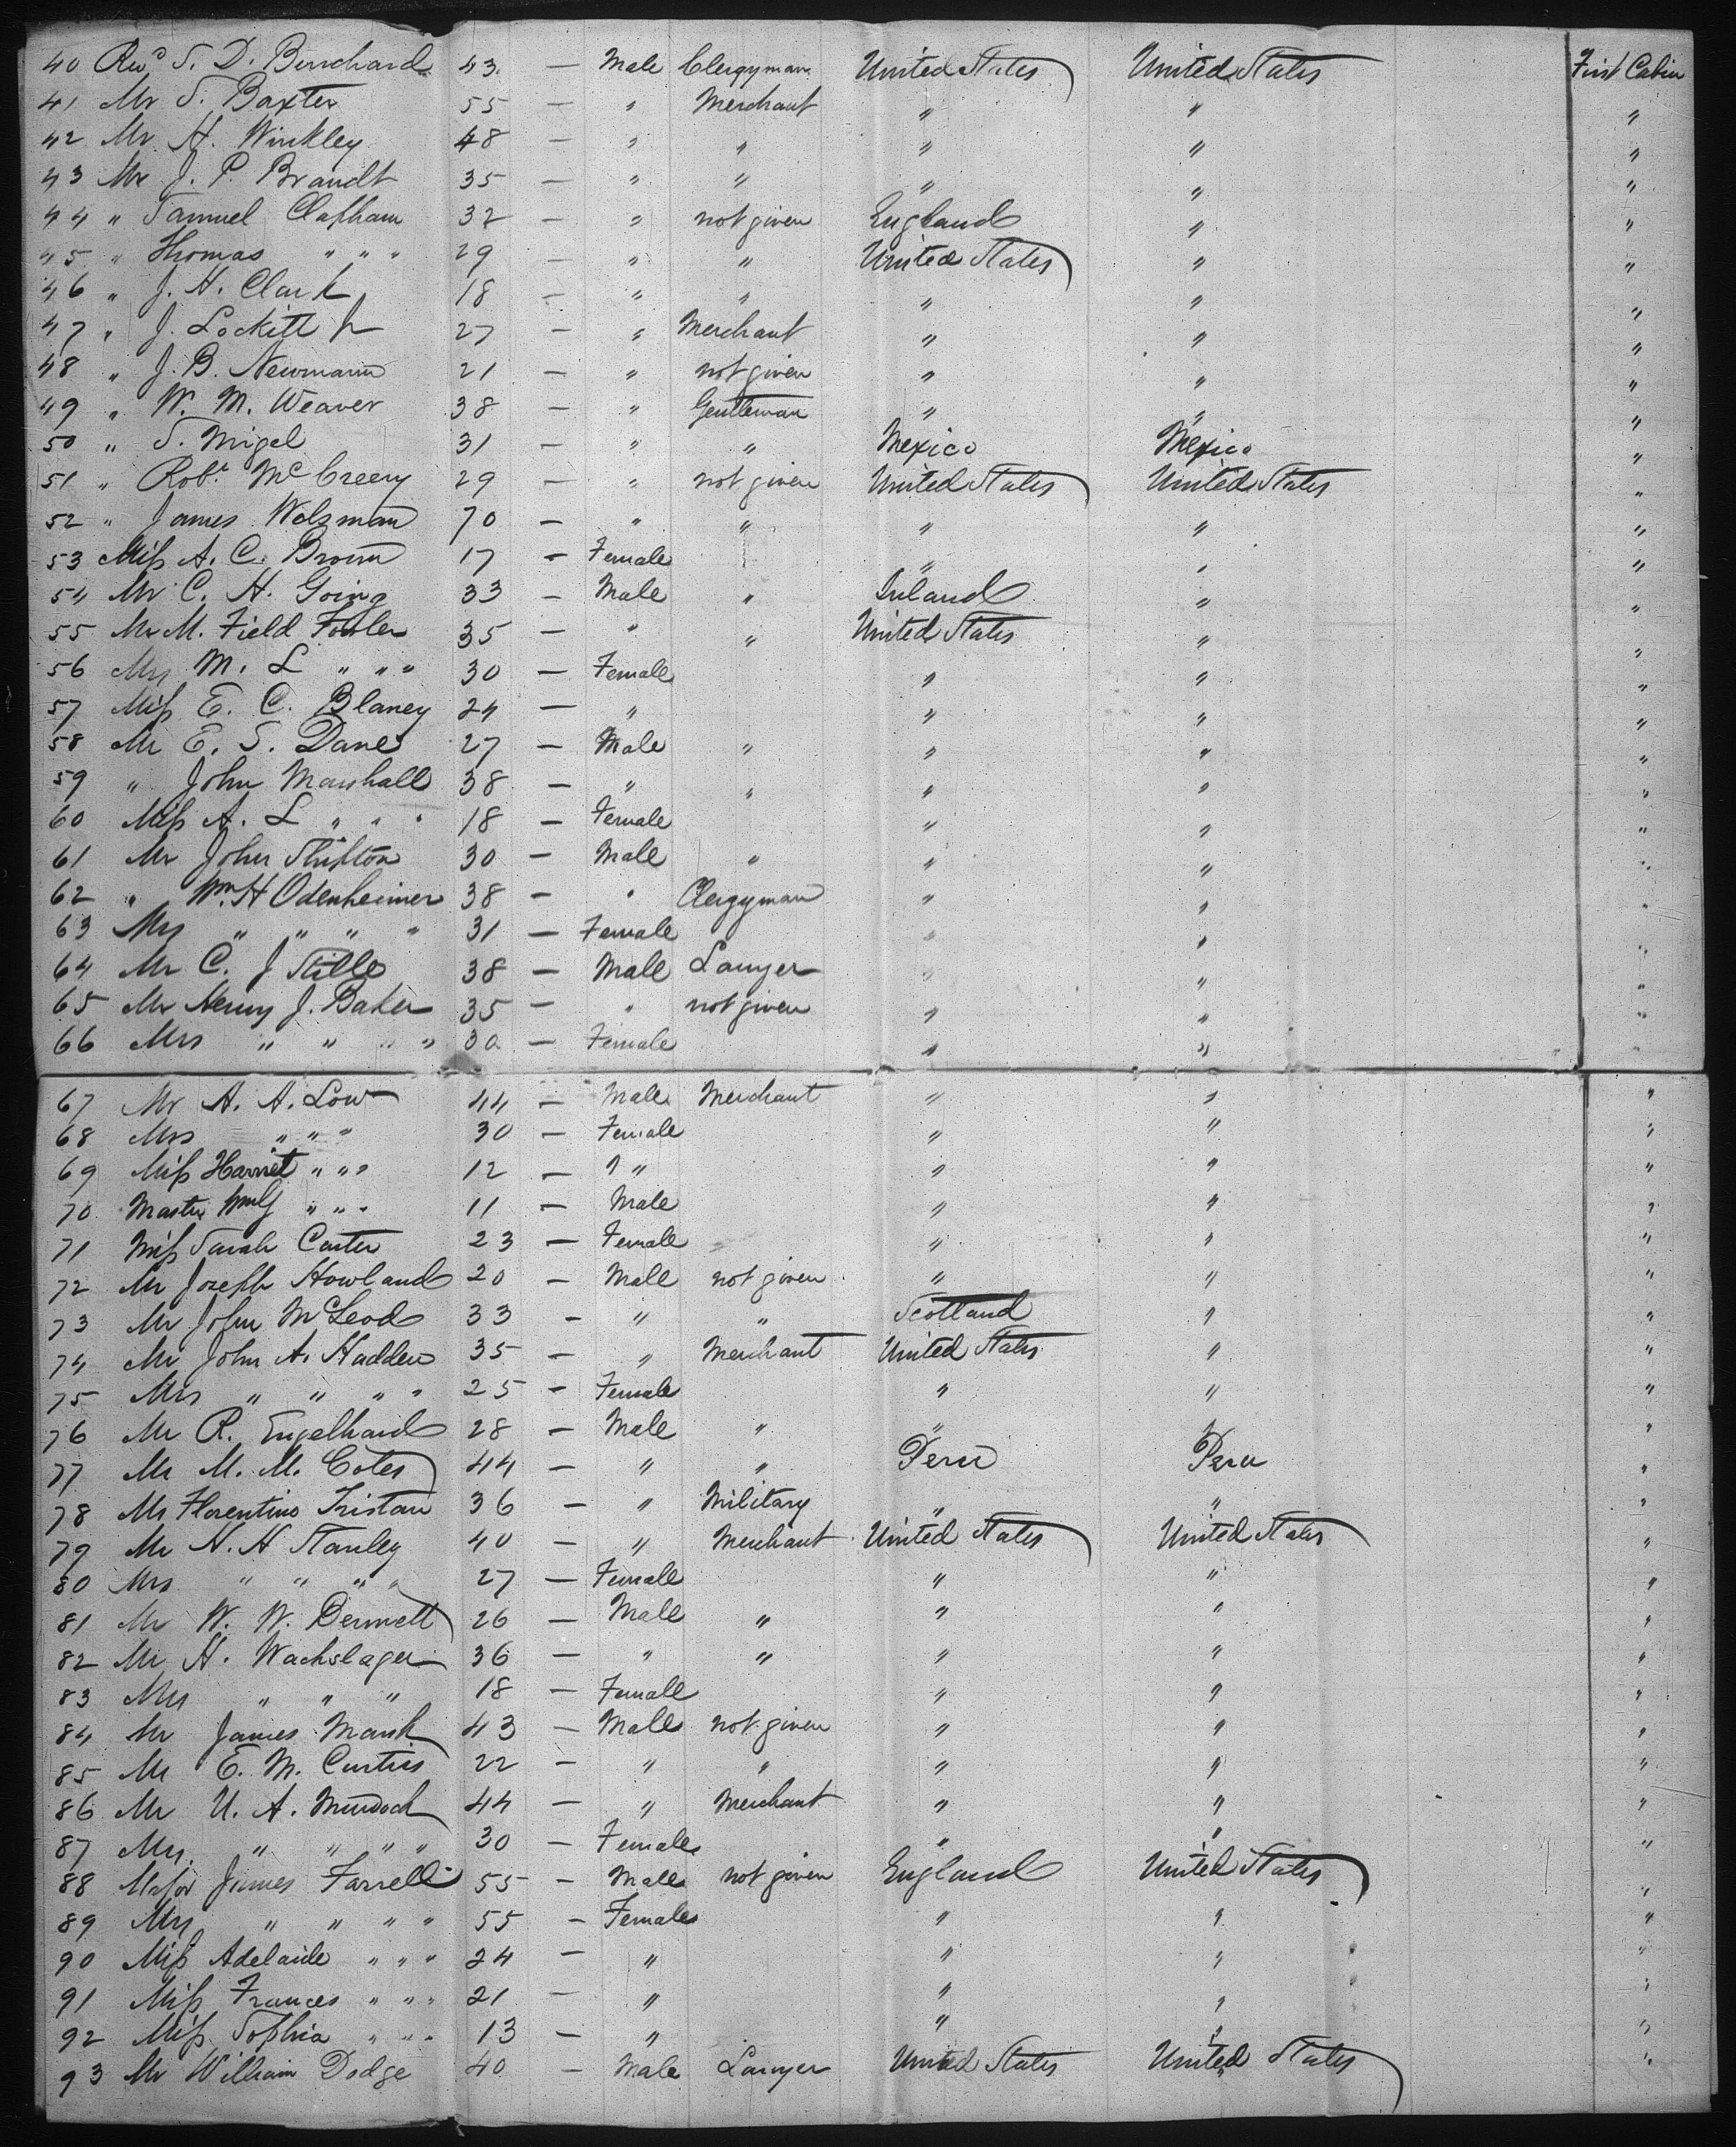 40 Revd S. D. Burchard 43 — Male Clergyman United States United States First Cabin
41 Mr S. Baxter 55 — " Merchant " " "
42 Mr H. Winkley 48 — " " " " "
43 Mr J. P. Brandt 35 — " " " " "
44 " Samuel Clapham 32 — " not given England " "
45 " Thomas " " " 29 — " " United States " "
46 " J. H. Clark 18 — " " " " "
47 " J. Lockitt Jr 27 — " Merchant " " "
48 " J. B. Newmann 21 — " not given " " "
49 " W. M. Weaver 38 — " Gentleman " " "
50 " S. Migel 31 — " " Mexico Mexico "
51 " Robt McCreery 29 — " not given United States United States "
52 " James Welsman 70 — " " " " "
53 Miss A. C. Brown 17 — Female " " "
54 Mr C. H. Going 33 — Male " Ireland " "
55 Mr M. Field Fowler 35 — " " United States " "
56 Mrs M. L " " " 30 — Female " " "
57 Miss E. C. Blaney 24 — " " " "
58 Mr E. S. Dane 27 — Male " " " "
59 " John Marshall 38 — " " " " "
60 Miss A. L " " " 18 — Female " " "
61 Mr John 30 — Male " " " "
62 " Wm. H Odenheimer 38 — " Clergyman " " "
63 Mrs " " " " 31 — Female " " "
64 Mr C. J Stille 38 — Male Lawyer " " "
65 Mr Henry J. Baker 35 — " not given " " "
66 Mrs " " " " 30 — Female " " "
67 Mr A. A. Low 44 — Male Merchant " " "
68 Mrs " " " 30 — Female " " "
69 Miss Harriet " " " 12 — " " " " "
70 Master " " " 11 — Male " " "
71 Miss Sarah Carter 23 — Female " " "
72 Mr Joseph Howland 20 — Male not given " " "
73 Mr John McLeod 33 — " " Scotland " "
74 Mr John A. Hadden 35 — " Merchant United States " "
75 Mrs " " " " 25 — Female " " "
76 Mr R. Engelhard 28 — Male " " " "
77 Mr M. M. Cotes 44 — " " Peru Peru "
78 Mr Florentino Tristan 36 — " Military " " "
79 Mr H. H Stanley 40 — " Merchant United States United States "
80 Mrs " " " " 27 — Female " " "
81 Mr W. W. Dermett 26 — Male " " " "
82 Mr H. Wachslager 36 — " " " " "
83 Mrs " " " 18 — Female " " "
84 Mr James Mark 43 — Male not given " " "
85 Mr E. M. Curtiss 22 — " " " " "
86 Mr U. A. Murdock 44 — " Merchant " " "
87 Mrs. " " " " 30 — Female " " "
88 Major James Farrell 55 — Male not given England United States "
89 Mrs " " " " 55 — Female " " "
90 Miss Adelaide " " " 24 — " " " "
91 Miss Frances " " " 21 — " " " "
92 Miss Sophia " " " 13 — " " " "
93 Mr William Dodge 40 — Male Lawyer United States United States "